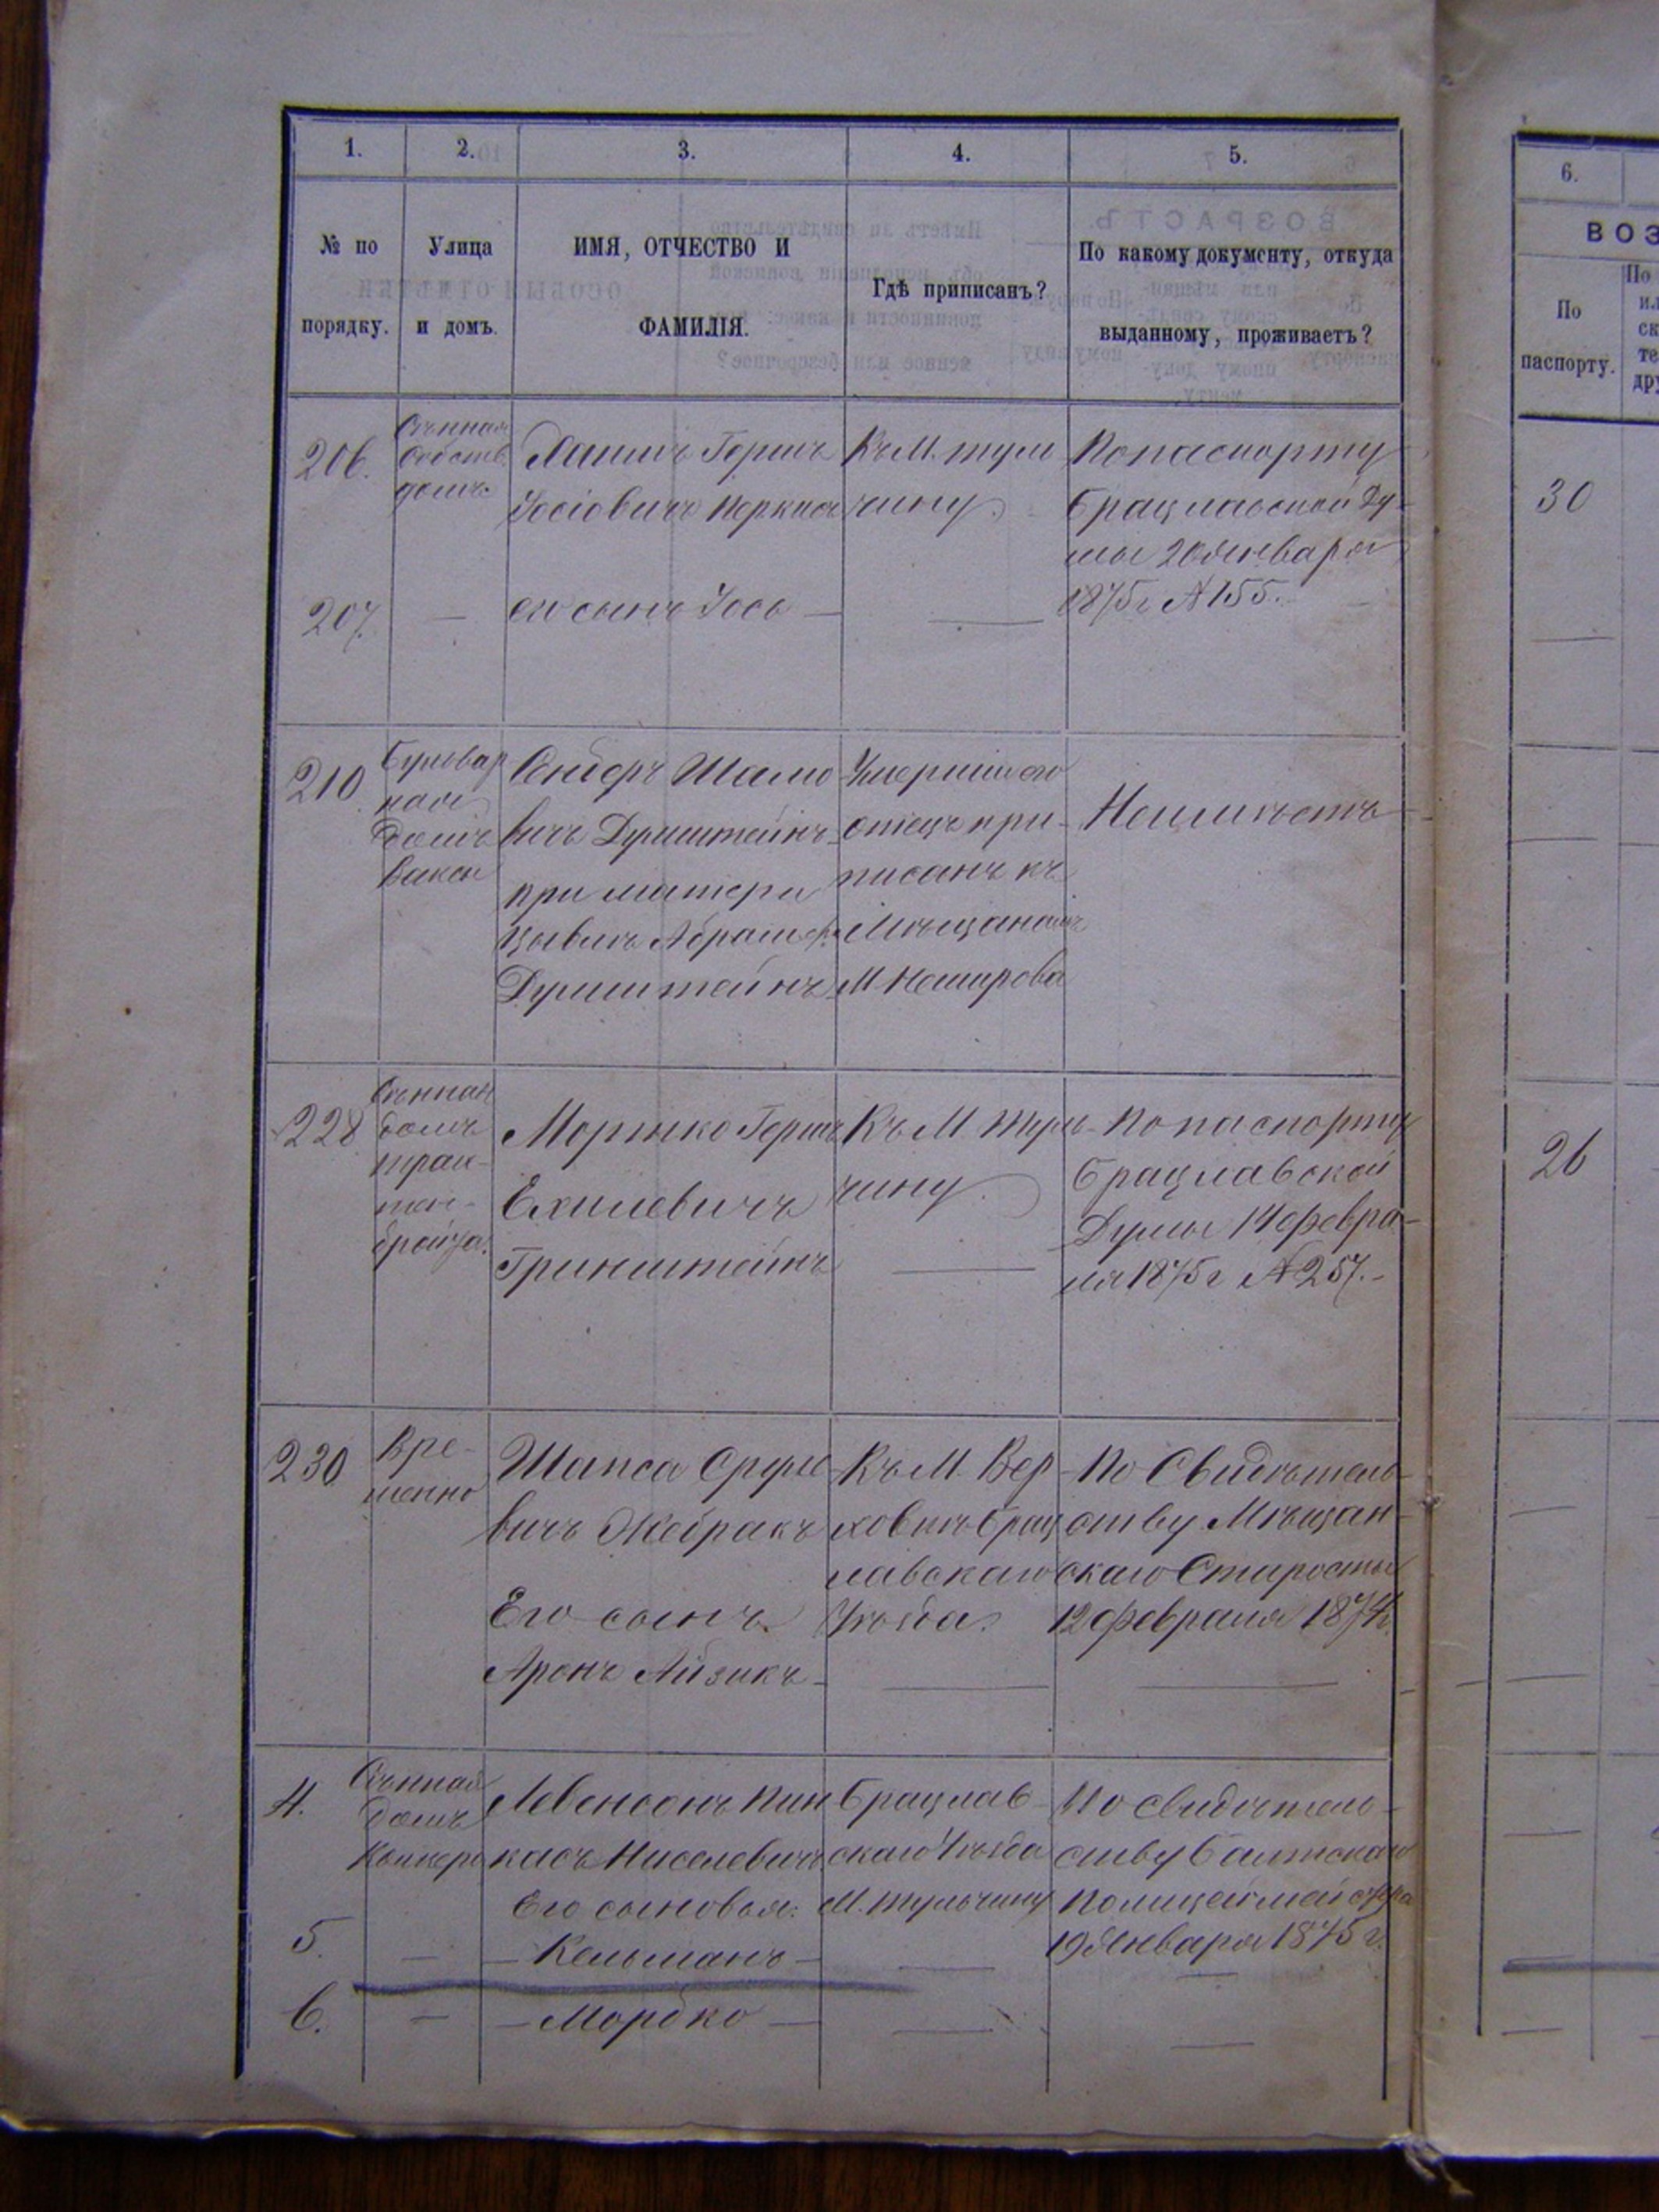 1. 2. 3. 4. 5.
№ по порядку.
Улица и домъ.
ИМЯ, ОТЧЕСТВО И ФАМИЛІЯ.
Гдѣ приписанъ?
По какому документу, откуда
выданному, проживаетъ?
6.
ВОЗ
По
паспорту.
206.
Сѣнная
собств.
домъ
Хаимъ Гершъ
Іосіовичъ
Къ М. Туль
чину.
По паспорту
Брацлавской Ду-
мы 20 Января
1875 г № 155.
30
207.
—
его сынъ Іось —
—
210
домъ
Сендеръ Шлио
вичъ Думштейнъ
при матери
Цывля Абрамов.
Думштейнъ
Умершаго
отецъ при-
писанъ къ
Мѣщанамъ
М Немирова
Неимѣетъ
228
Сѣнная
домъ
Мортко Гершъ
Ехилевичъ
Гринштейнъ
Къ М Туль-
чину.
По паспорту
Брацлавской
Думы 14 Февра-
ля 1875 г № 257.
26
230
Вре-
менно
Шапса Сруле
вичъ Жебракъ
Его сынъ
Аронъ Айзикъ
Къ М. Вер
ховкѣ Брац
лавскаго
Уѣзда.
По Свидѣтель-
ству Мѣщан-
скаго Старосты
12 Февраля 1874.
4.
Сѣнная
домъ
Левенсонъ Пин
касъ Ниселевичъ
Его сыновья:
Брацлав
скаго Уѣзда
М. Тульчину
По свидѣтель-
ству Балтскаго
Полицеймейстера
19 Января 1875 г.
5.
— Кельманъ —
6.
— Мордко —